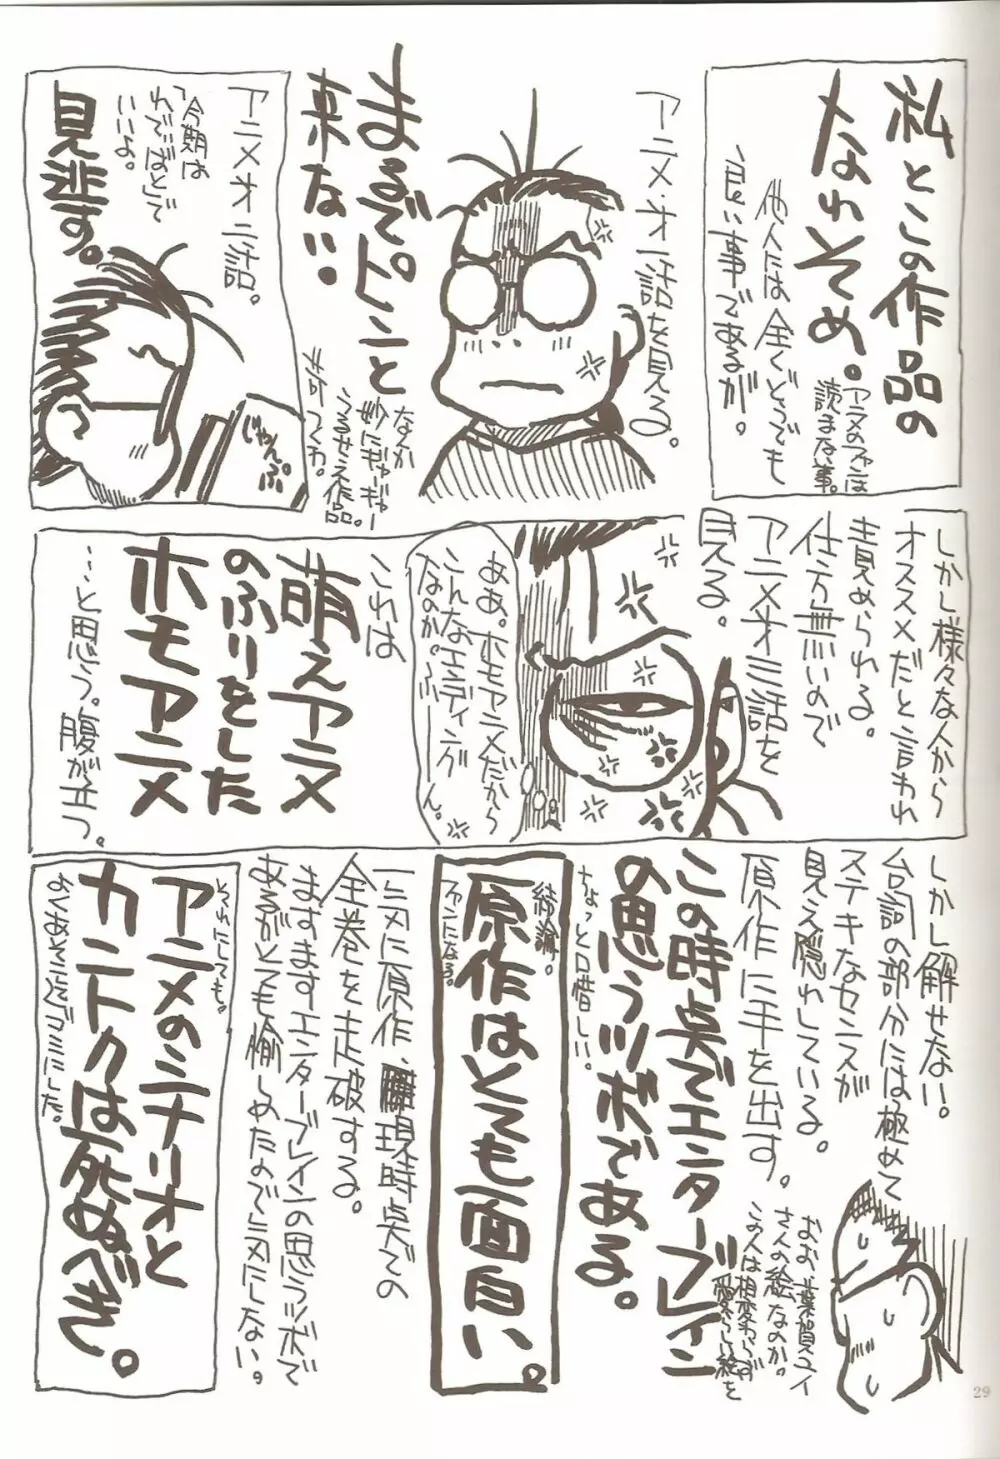 私とこの作品の
なれそめ。
アニメのファンは
読まな事。
他人には全くどうでも
良い事であるが。
アニメ才一話を見る。
まるでピンと
来ない。
なんか
妙にギャーギャー
うるせえ作品。
アニメオニ話。
「今期は
れでぃばと」で
いいよ。
見逃す。
じゃんぷ
しかし様々な人から
オススメだと言われ
責められる。
仕方無いので
アニメオ三話を
見る。
ああ。ホモアニメだから
こんなエンディング
なのか。ふーん。
これは
萌えアニメ
のふりをした
ホモアニメ
…と思う。腹が立つ。
しかし解せない。
台詞の部分には極めて
ステキなセンスが
見え隠れしている。
原作に手を出す。
おお、葉賀ユイ
さんの絵なのか。
この人は相変わらず
愛らしい絵を
この時点でエンターブレイン
の思うツボである。
ちょっと口惜しい…
結論。
原作はくても面白い。
ファンになる。
一気に原作、現時点での
全巻を走破する。
ますますエンターブレインの思うツボで
あるがとても愉しめたので気にしない。
それにしても。
アニメのシナリオと
カントクは死ぬべき。
29